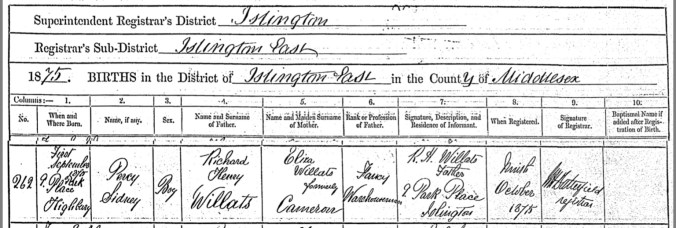 Superintendent Registrar's District Islington
Registrar's Sub-District Islington East
1875. BIRTHS in the District of Islington East in the County of Middlesex
Columns:— 1. 2. 3. 4. 5. 6. 7. 8. 9. 10.
No. When and Where Born. Name, if any. Sex. Name and Surname of Father. Name and Maiden Surname of Mother. Rank or Profession of Father. Signature, Description, and Residence of Informant. When Registered. Signature of Registrar. Baptismal Name if added after Registration of Birth.
262 First September 1875 Park Place Highbury Percy Sidney Boy Richard Henry Willats Eliza Willats formerly Cameron Fancy Warehouseman R. H. Willats Father Park Place Islington Ninth October 1875 Butterfield registrar